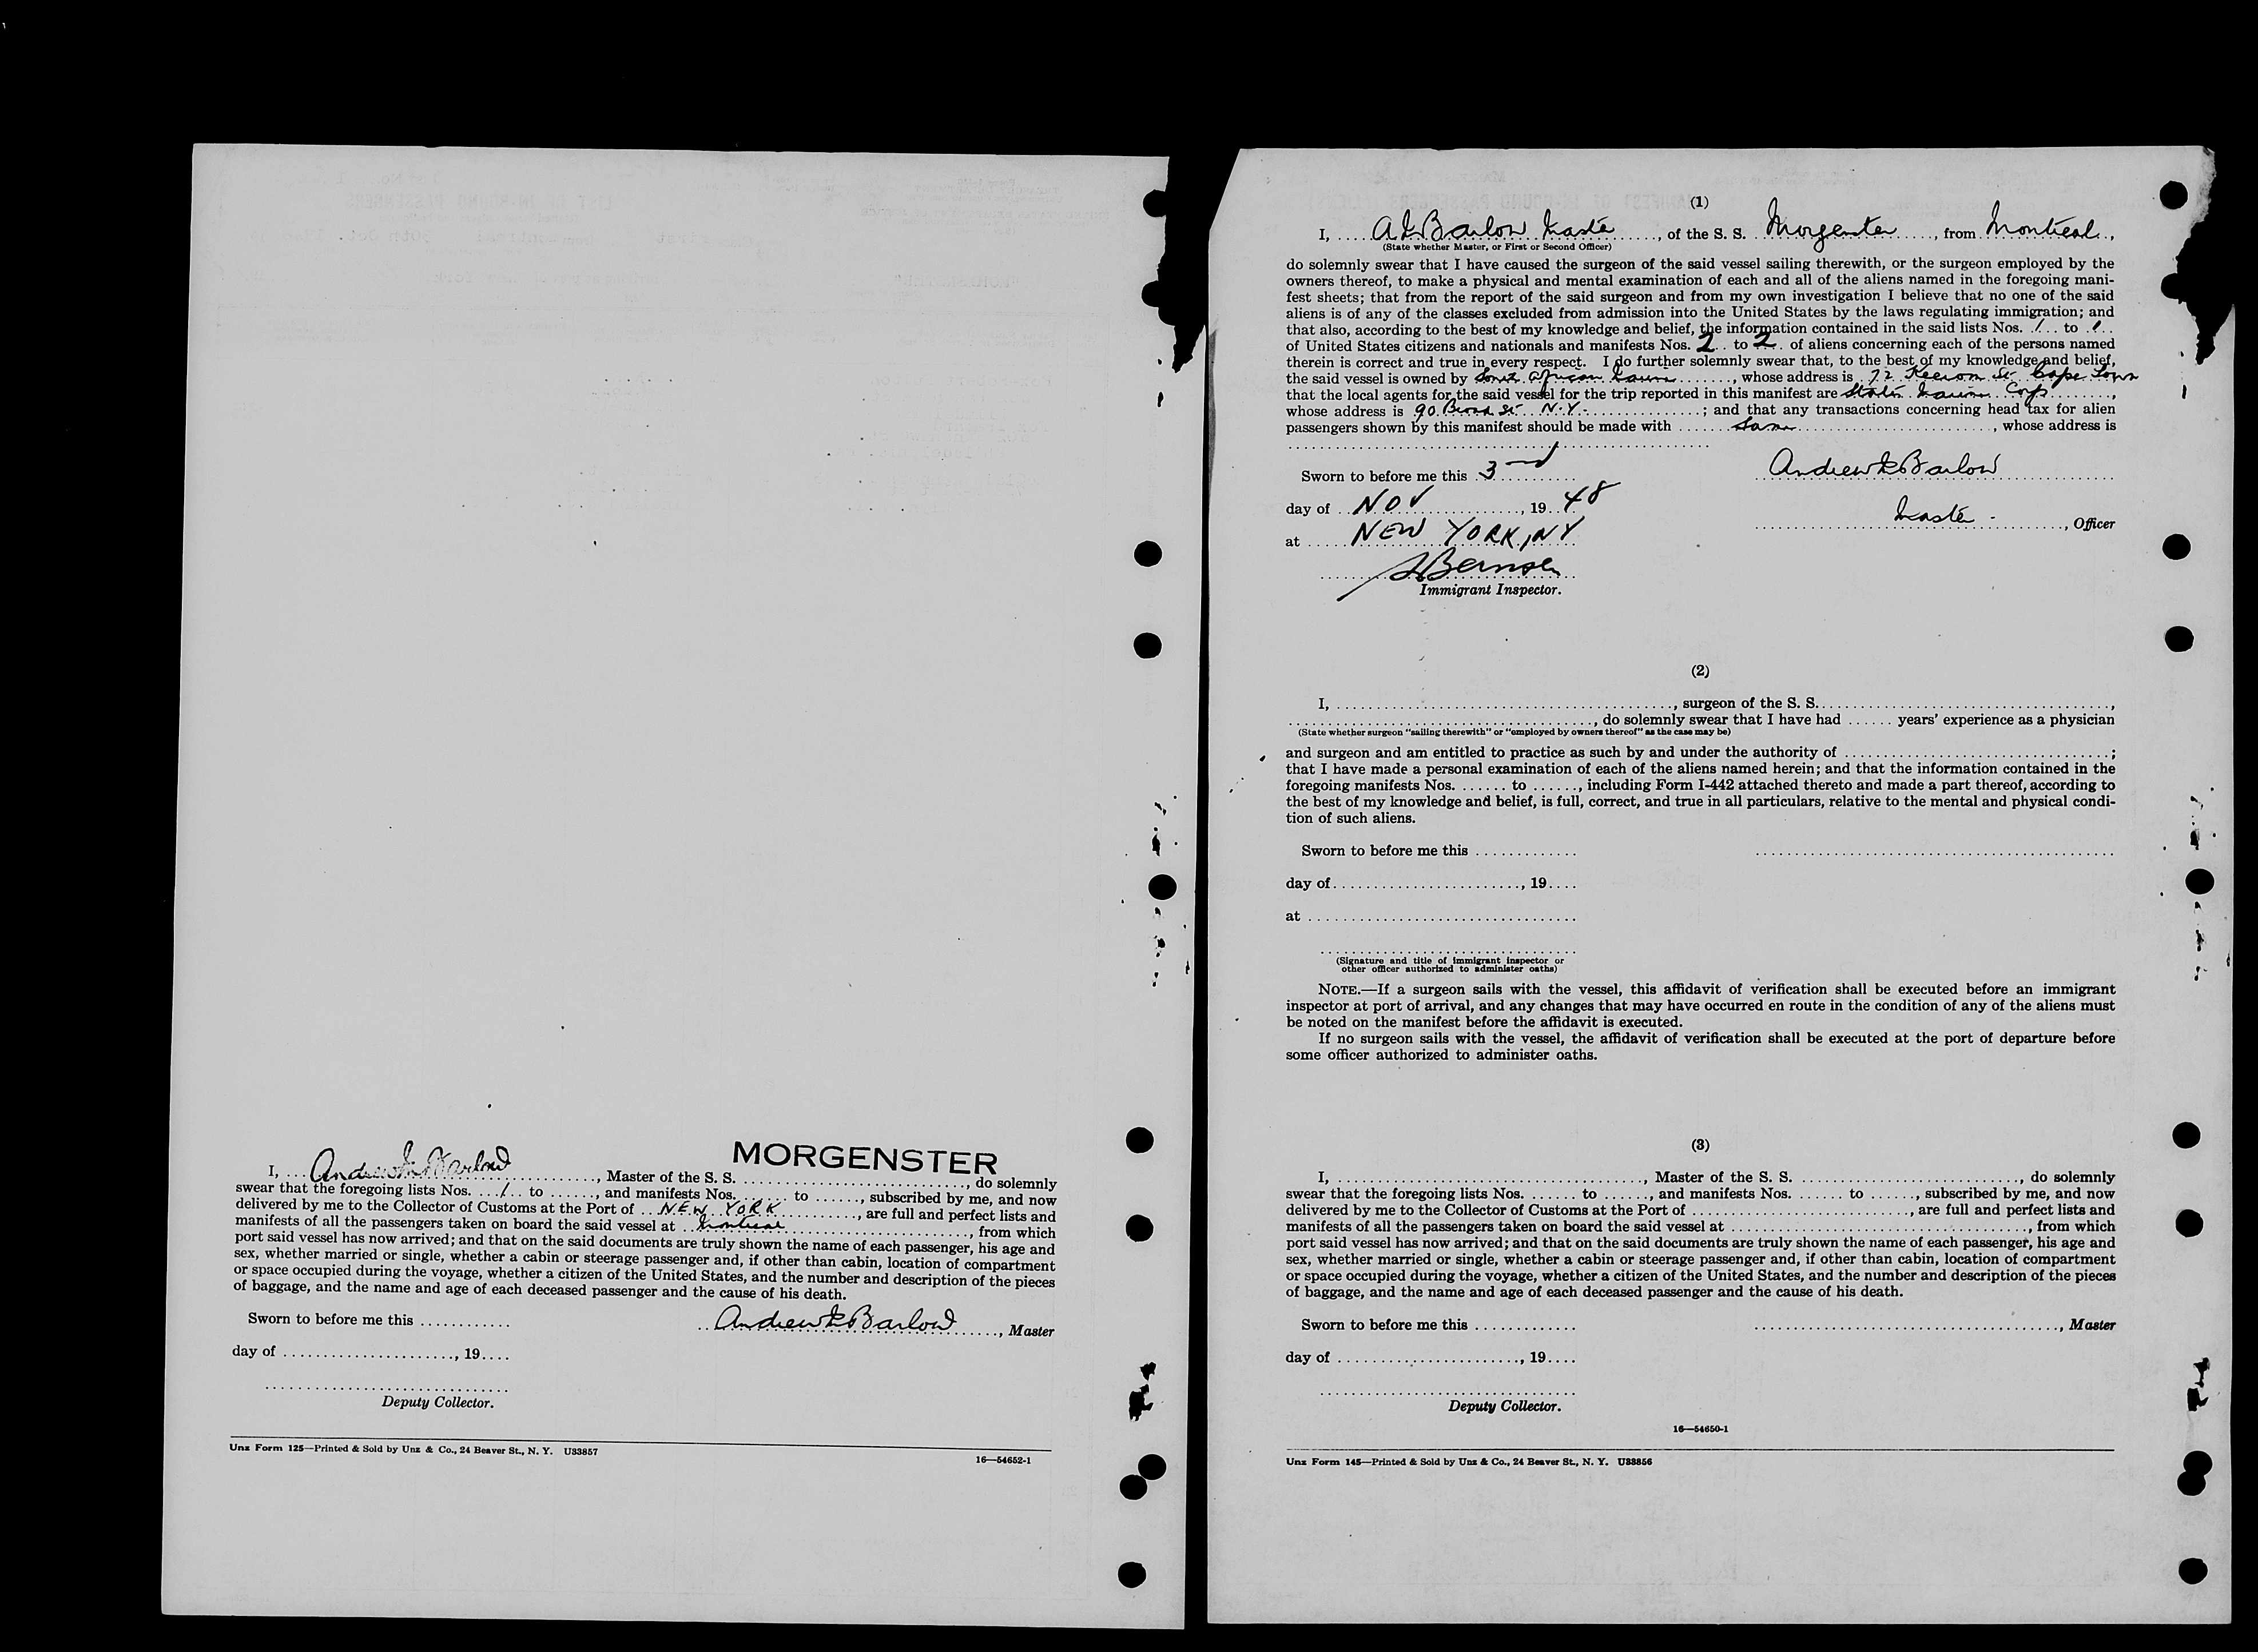 MORGENSTER
I, ... Andrew L Barlow ..., Master of the S. S. ..., do solemnly
swear that the foregoing lists Nos. ... 1 .. to ......, and manifests Nos. ...... to ......, subscribed by me, and now
delivered by me to the Collector of Customs at the Port of .. NEW YORK ..., are full and perfect lists and
manifests of all the passengers taken on board the said vessel at .. Montreal ..., from which
port said vessel has now arrived; and that on the said documents are truly shown the name of each passenger, his age and
sex, whether married or single, whether a cabin or steerage passenger and, if other than cabin, location of compartment
or space occupied during the voyage, whether a citizen of the United States, and the number and description of the pieces
of baggage, and the name and age of each deceased passenger and the cause of his death.
Sworn to before me this ............ Andrew L Barlow ......, Master
day of ......................, 19....
Deputy Collector.
Unz Form 125—Printed & Sold by Unz & Co., 24 Beaver St., N. Y. U33857
16—54652-1
(1)
I, ..... A L Barlow Master ....., of the S. S. Morgenster ....., from Montreal ..,
(State whether Master, or First or Second Officer)
do solemnly swear that I have caused the surgeon of the said vessel sailing therewith, or the surgeon employed by the
owners thereof, to make a physical and mental examination of each and all of the aliens named in the foregoing mani-
fest sheets; that from the report of the said surgeon and from my own investigation I believe that no one of the said
aliens is of any of the classes excluded from admission into the United States by the laws regulating immigration; and
that also, according to the best of my knowledge and belief, the information contained in the said lists Nos. . 1 .. to . 1 ..
of United States citizens and nationals and manifests Nos. 2 .. to 2 .. of aliens concerning each of the persons named
therein is correct and true in every respect. I do further solemnly swear that, to the best of my knowledge and belief,
the said vessel is owned by South African Marine ......., whose address is . 72 Keerom St. Cape Town
that the local agents for the said vessel for the trip reported in this manifest are States Marine Corp .........,
whose address is 90 Broad St N.Y. ...............; and that any transactions concerning head tax for alien
passengers shown by this manifest should be made with ....... Same ........................., whose address is
Sworn to before me this . 3rd ........... Andrew L Barlow
day of .. NOV ..............., 19.. 48
Master - ..........., Officer
at ..... NEW YORK, NY
Immigrant Inspector.
(2)
I, .........................................., surgeon of the S. S....................................,
......................................, do solemnly swear that I have had ...... years' experience as a physician
(State whether surgeon "sailing therewith" or "employed by owners thereof" as the case may be)
and surgeon and am entitled to practice as such by and under the authority of .................................;
that I have made a personal examination of each of the aliens named herein; and that the information contained in the
foregoing manifests Nos. ...... to ......, including Form I-442 attached thereto and made a part thereof, according to
the best of my knowledge and belief, is full, correct, and true in all particulars, relative to the mental and physical condi-
tion of such aliens.
Sworn to before me this .............
day of........................, 19....
at .................................
(Signature and title of immigrant inspector or
other officer authorized to administer oaths)
NOTE.—If a surgeon sails with the vessel, this affidavit of verification shall be executed before an immigrant
inspector at port of arrival, and any changes that may have occurred en route in the condition of any of the aliens must
be noted on the manifest before the affidavit is executed.
If no surgeon sails with the vessel, the affidavit of verification shall be executed at the port of departure before
some officer authorized to administer oaths.
(3)
I, ......................................, Master of the S. S. ..........................., do solemnly
swear that the foregoing lists Nos. ...... to ......, and manifests Nos. ...... to ......, subscribed by me, and now
delivered by me to the Collector of Customs at the Port of ..........................., are full and perfect lists and
manifests of all the passengers taken on board the said vessel at ....................................., from which
port said vessel has now arrived; and that on the said documents are truly shown the name of each passenger, his age and
sex, whether married or single, whether a cabin or steerage passenger and, if other than cabin, location of compartment
or space occupied during the voyage, whether a citizen of the United States, and the number and description of the pieces
of baggage, and the name and age of each deceased passenger and the cause of his death.
Sworn to before me this ............. ....................................., Master
day of ......................., 19....
Deputy Collector.
16—54650-1
Unz Form 145—Printed & Sold by Unz & Co., 24 Beaver St., N. Y. U33856